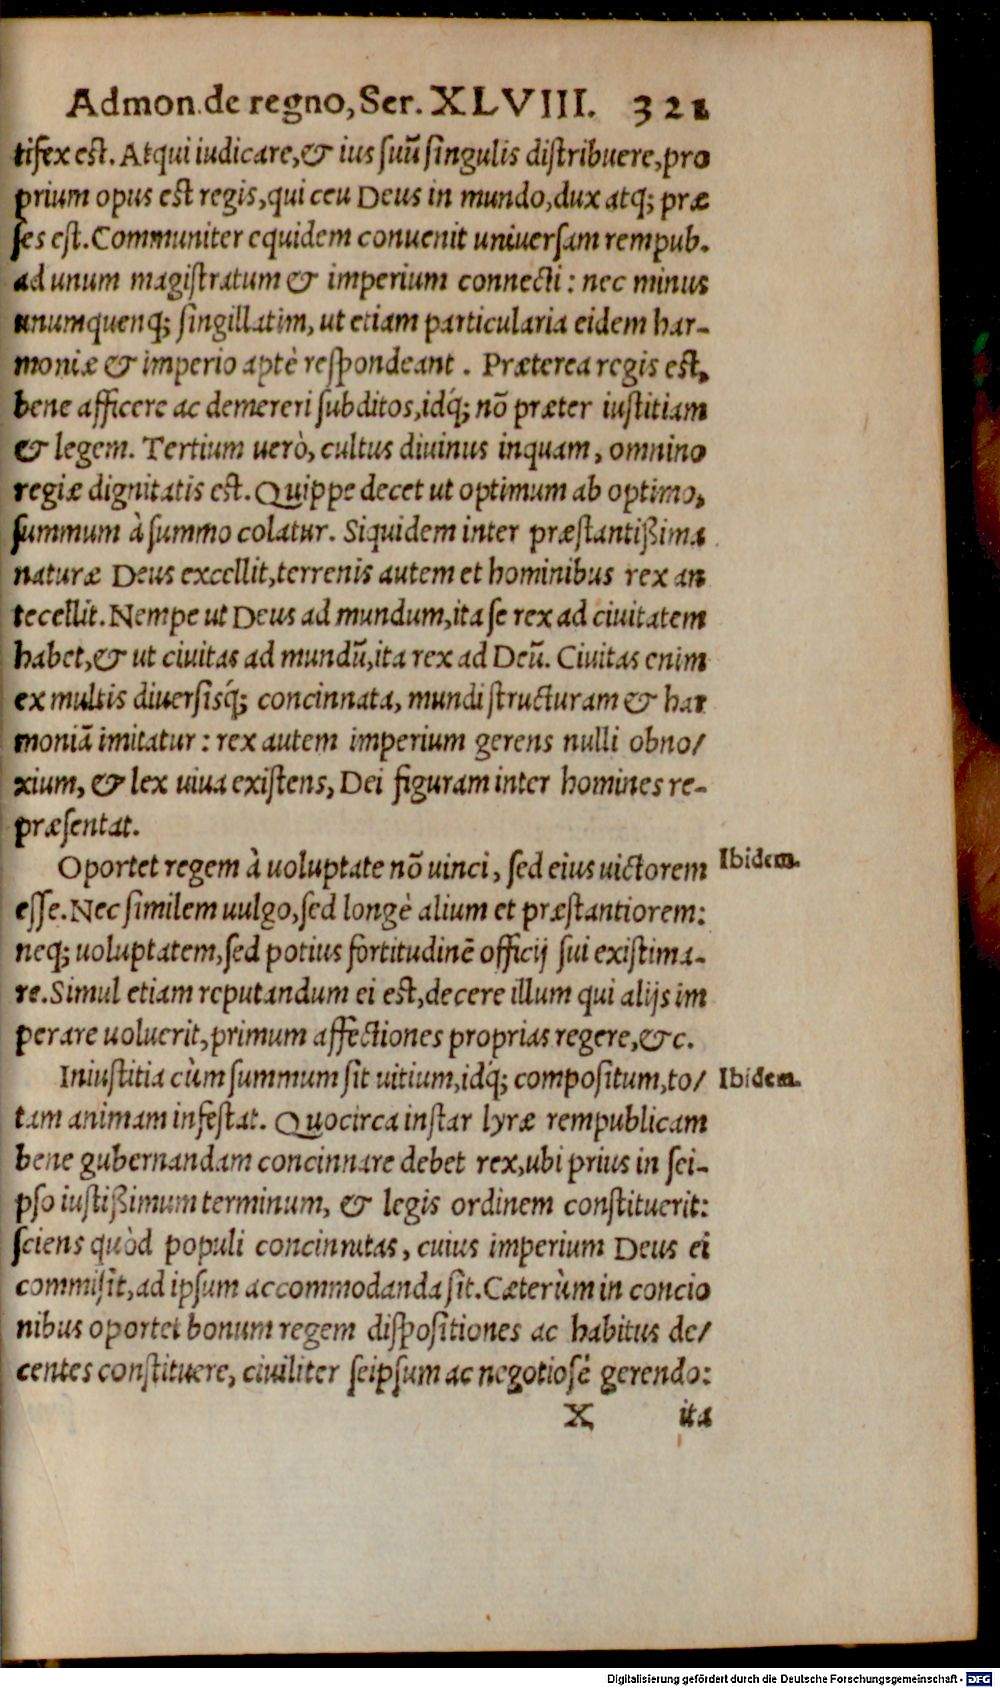 Admon. de regno, Ser. XLVIII. 321
tifex est. Atqui iudicare, & ius suũ singulis distribuere, pro
prium opus est regis, qui ceu Deus in mundo, dux atq; præ
ses est. Communiter equidem conuenit uniuersam rempub.
ad unum magistratum & imperium connecti: nec minus
unumquenq; singillatim, ut etiam particularia eidem har-
moniæ & imperio aptè respondeant. Præterea regis est,
bene afficere ac demereri subditos, idq́; nõ præter iustitiam
& legem. Tertium uerò, cultus diuinus inquam, omnino
regiæ dignitatis est. Quippe decet ut optimum ab optimo,
summum à summo colatur. Siquidem inter præstantißima
naturæ Deus excellit, terrenis autem et hominibus rex an
tecellit. Nempe ut Deus ad mundum, ita se rex ad ciuitatem
habet, & ut ciuitas ad mundũ, ita rex ad Deũ. Ciuitas enim
ex multis diuersisq́; concinnata, mundi structuram & har
moniã imitatur: rex autem imperium gerens nulli obno/
xium, & lex uiua existens, Dei figuram inter homines re-
præsentat.
Oportet regem à uoluptate nõ uinci, sed eius uictorem Ibidem.
esse. Nec similem uulgo, sed longè alium et præstantiorem:
neq; uoluptatem, sed potius fortitudinẽ officij sui existima-
re. Simul etiam reputandum ei est, decere illum qui alijs im
perare uoluerit, primum affectiones proprias regere, &c.
Iniustitia cùm summum sit uitium, idq́; compositum, to/ Ibidem.
tam animam infestat. Quocirca instar lyræ rempublicam
bene gubernandam concinnare debet rex, ubi prius in sei-
pso iustißimum terminum, & legis ordinem constituerit:
sciens quòd populi concinnitas, cuius imperium Deus ei
commisit, ad ipsum accommodanda sit. Cæterùm in concio
nibus oportet bonum regem dispositiones ac habitus de/
centes constituere, ciuiliter seipsum ac negotiosè gerendo:
X ita
Digitalisierung gefördert durch die Deutsche Forschungsgemeinschaft - DFG